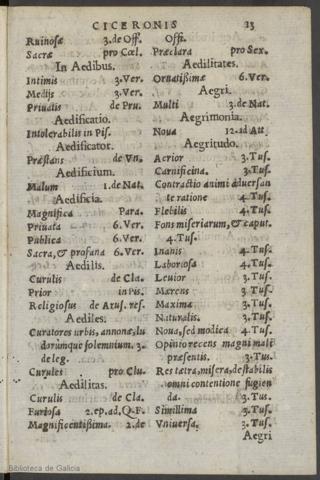 CICERONIS 23
Ruinosæ 3. de Off.
Sacræ pro Cœl.
In Aedibus.
Intimis 3. Ver.
Medijs 3. Ver.
Priuatis de Pru.
Aedificatio.
Intolerabilis in Pis.
Aedificator.
Præstans de Vn.
Aedificium.
Malum 1. de Nat.
Aedificia.
Magnifica Para.
Priuata 6. Ver.
Publica 6. Ver.
Sacra, & profana 6. Ver.
Aedilis.
Curulis de Cla.
Prior in Pis.
Religiosus de Arus. res.
Aediles.
Curatores urbis, annonæ, lu
dorúmque solemnium. 3.
de leg.
Curules pro Clu.
Aedilitas.
Curulis de Cla.
Furiosa 2. ep. ad. Q. F.
Magnificentißima. 2. de
Offi.
Præclara pro Sex.
Aedilitates.
Ornatißimæ 6. Ver.
Aegri.
Multi 3. de Nat.
Aegrimonia.
Noua 12. ad Att
Aegritudo.
Acrior 3. Tus.
Carnificina. 3. Tus.
Contractio animi aduersan
te ratione 4. Tus.
Flebilis 4. Tus.
Fons miseriarum, & caput.
4. Tus.
Inanis 4. Tus.
Laboriosa 4. Tus.
Leuior 3. Tus.
Marcens 3. Tus.
Maxima 3. Tus.
Naturalis. 3. Tus.
Noua, sed modica 4. Tus.
Opinio recens magni mali
præsentis. 3. Tus.
Res tetra, misera, detestabilis
omni contentione fugien
da. 3. Tus.
Simillima 3. Tus.
Vniuersa. 3. Tus.
Aegri
Biblioteca de Galicia